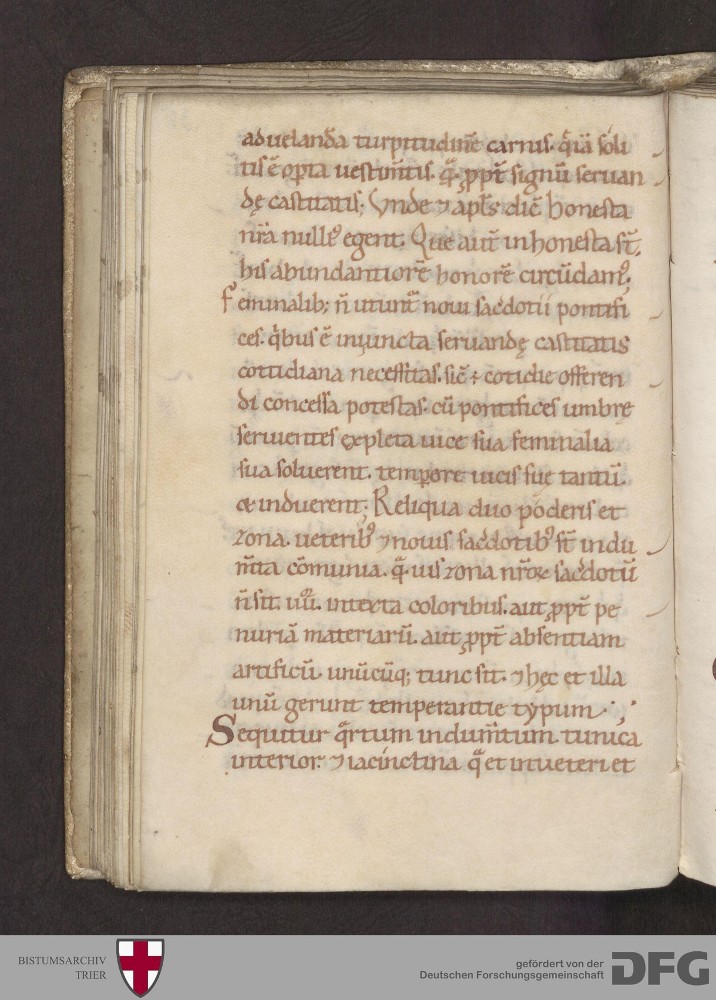 ad uelanda̅ turpitudine̅ carnis. q̅ia̅ soli
tis e̅ op̅ta uestim̅tis. q̅. ꝓpt̅ signu̅ seruan
dę castitatis; Vnde ⁊ apl̅s dic̅ honesta
nr̅a nullꝰ egent. Que aut̅ inhonesta st̅.
his abundantiore̅ honore̅ circu̅damꝰ.
Feminalib; n̅ utunt̅ noui sacdotii pontifi
ces. q̅bus e̅ iniuncta seruandę castitatis
cottidiana necessitas. sic̅ ÷ cotidie offeren
di concessa potestas. cu̅ pontifices umbrę
seruientes expleta uice sua feminalia
sua soluerent. tempore uicis suę tantu̅.
& induerent; Reliqua duo poderis et
zona. ueteribꝰ ⁊ nouis sacdotibꝰ st̅ indu
m̅ta co̅munia. q̅. uis zona nr̅oꝝ sacdotu̅
n̅ sit. intexta coloribus. aut ꝓpt̅ pe
nuria̅ materiaru̅. aut ꝓpt̅ absentiam
artificu̅. unu̅cu̅q; tunc sit. ⁊ hęc et illa
unu̅ gerunt temperantie typum.
Sequitur q̅rtum indum̅tum. tunica
interior. ⁊ iacinctina q̅ et in ueteri et
BISTUMSARCHIV
TRIER
gefördert von der
Deutschen Forschungsgemeinschaft
DFG